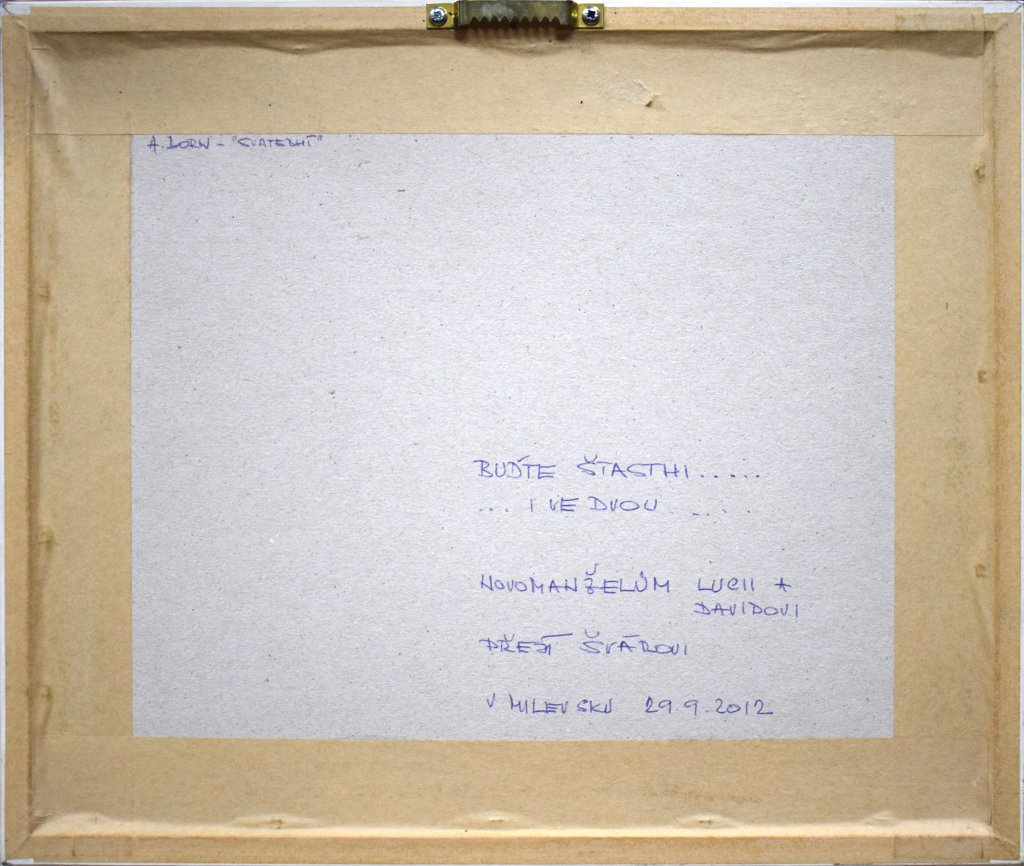 A. DORN - "SVATEBNÍ"
BUĎTE ŠŤASTNI.....
... I VE DVOU .....
NOVOMANŽELŮM LUCII A
DAVIDOVI
PŘEJÍ ŠVÁROVI
V MILEVSKU 29.9.2012